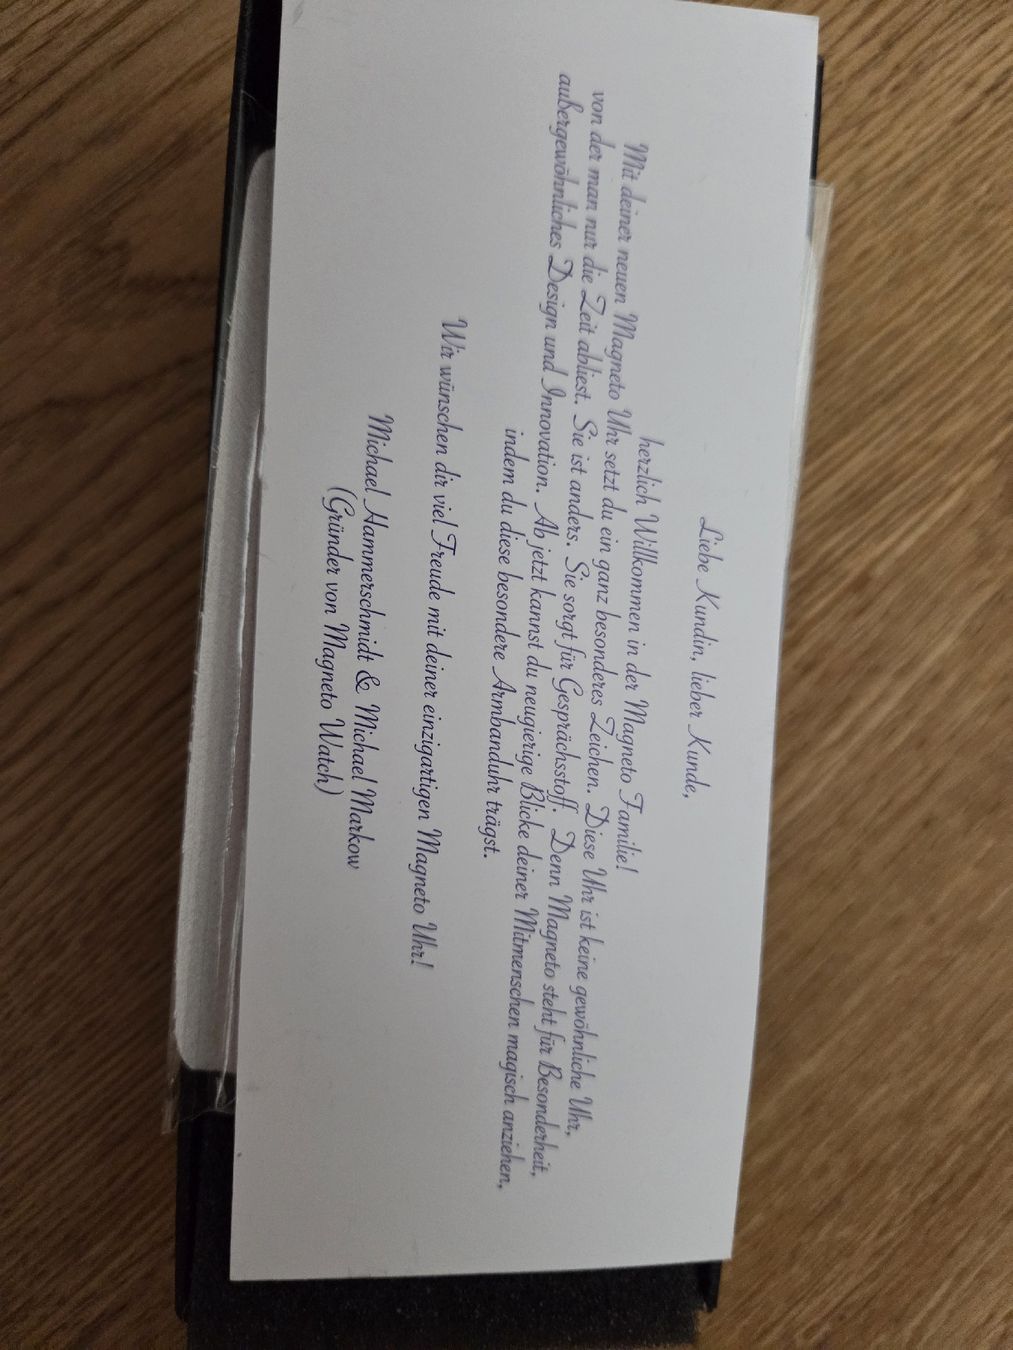 Liebe Kundin, lieber Kunde,
herzlich Willkommen in der Magneto Familie!
Mit deiner neuen Magneto Uhr setzt du ein ganz besonderes Zeichen. Diese Uhr ist keine gewöhnliche Uhr,
von der man nur die Zeit abliest. Sie ist anders. Sie sorgt für Gesprächsstoff. Denn Magneto steht für Besonderheit,
außergewöhnliches Design und Innovation. Ab jetzt kannst du neugierige Blicke deiner Mitmenschen magisch anziehen,
indem du diese besondere Armbanduhr trägst.
Wir wünschen dir viel Freude mit deiner einzigartigen Magneto Uhr!
Michael Hammerschmidt & Michael Markow
(Gründer von Magneto Watch)